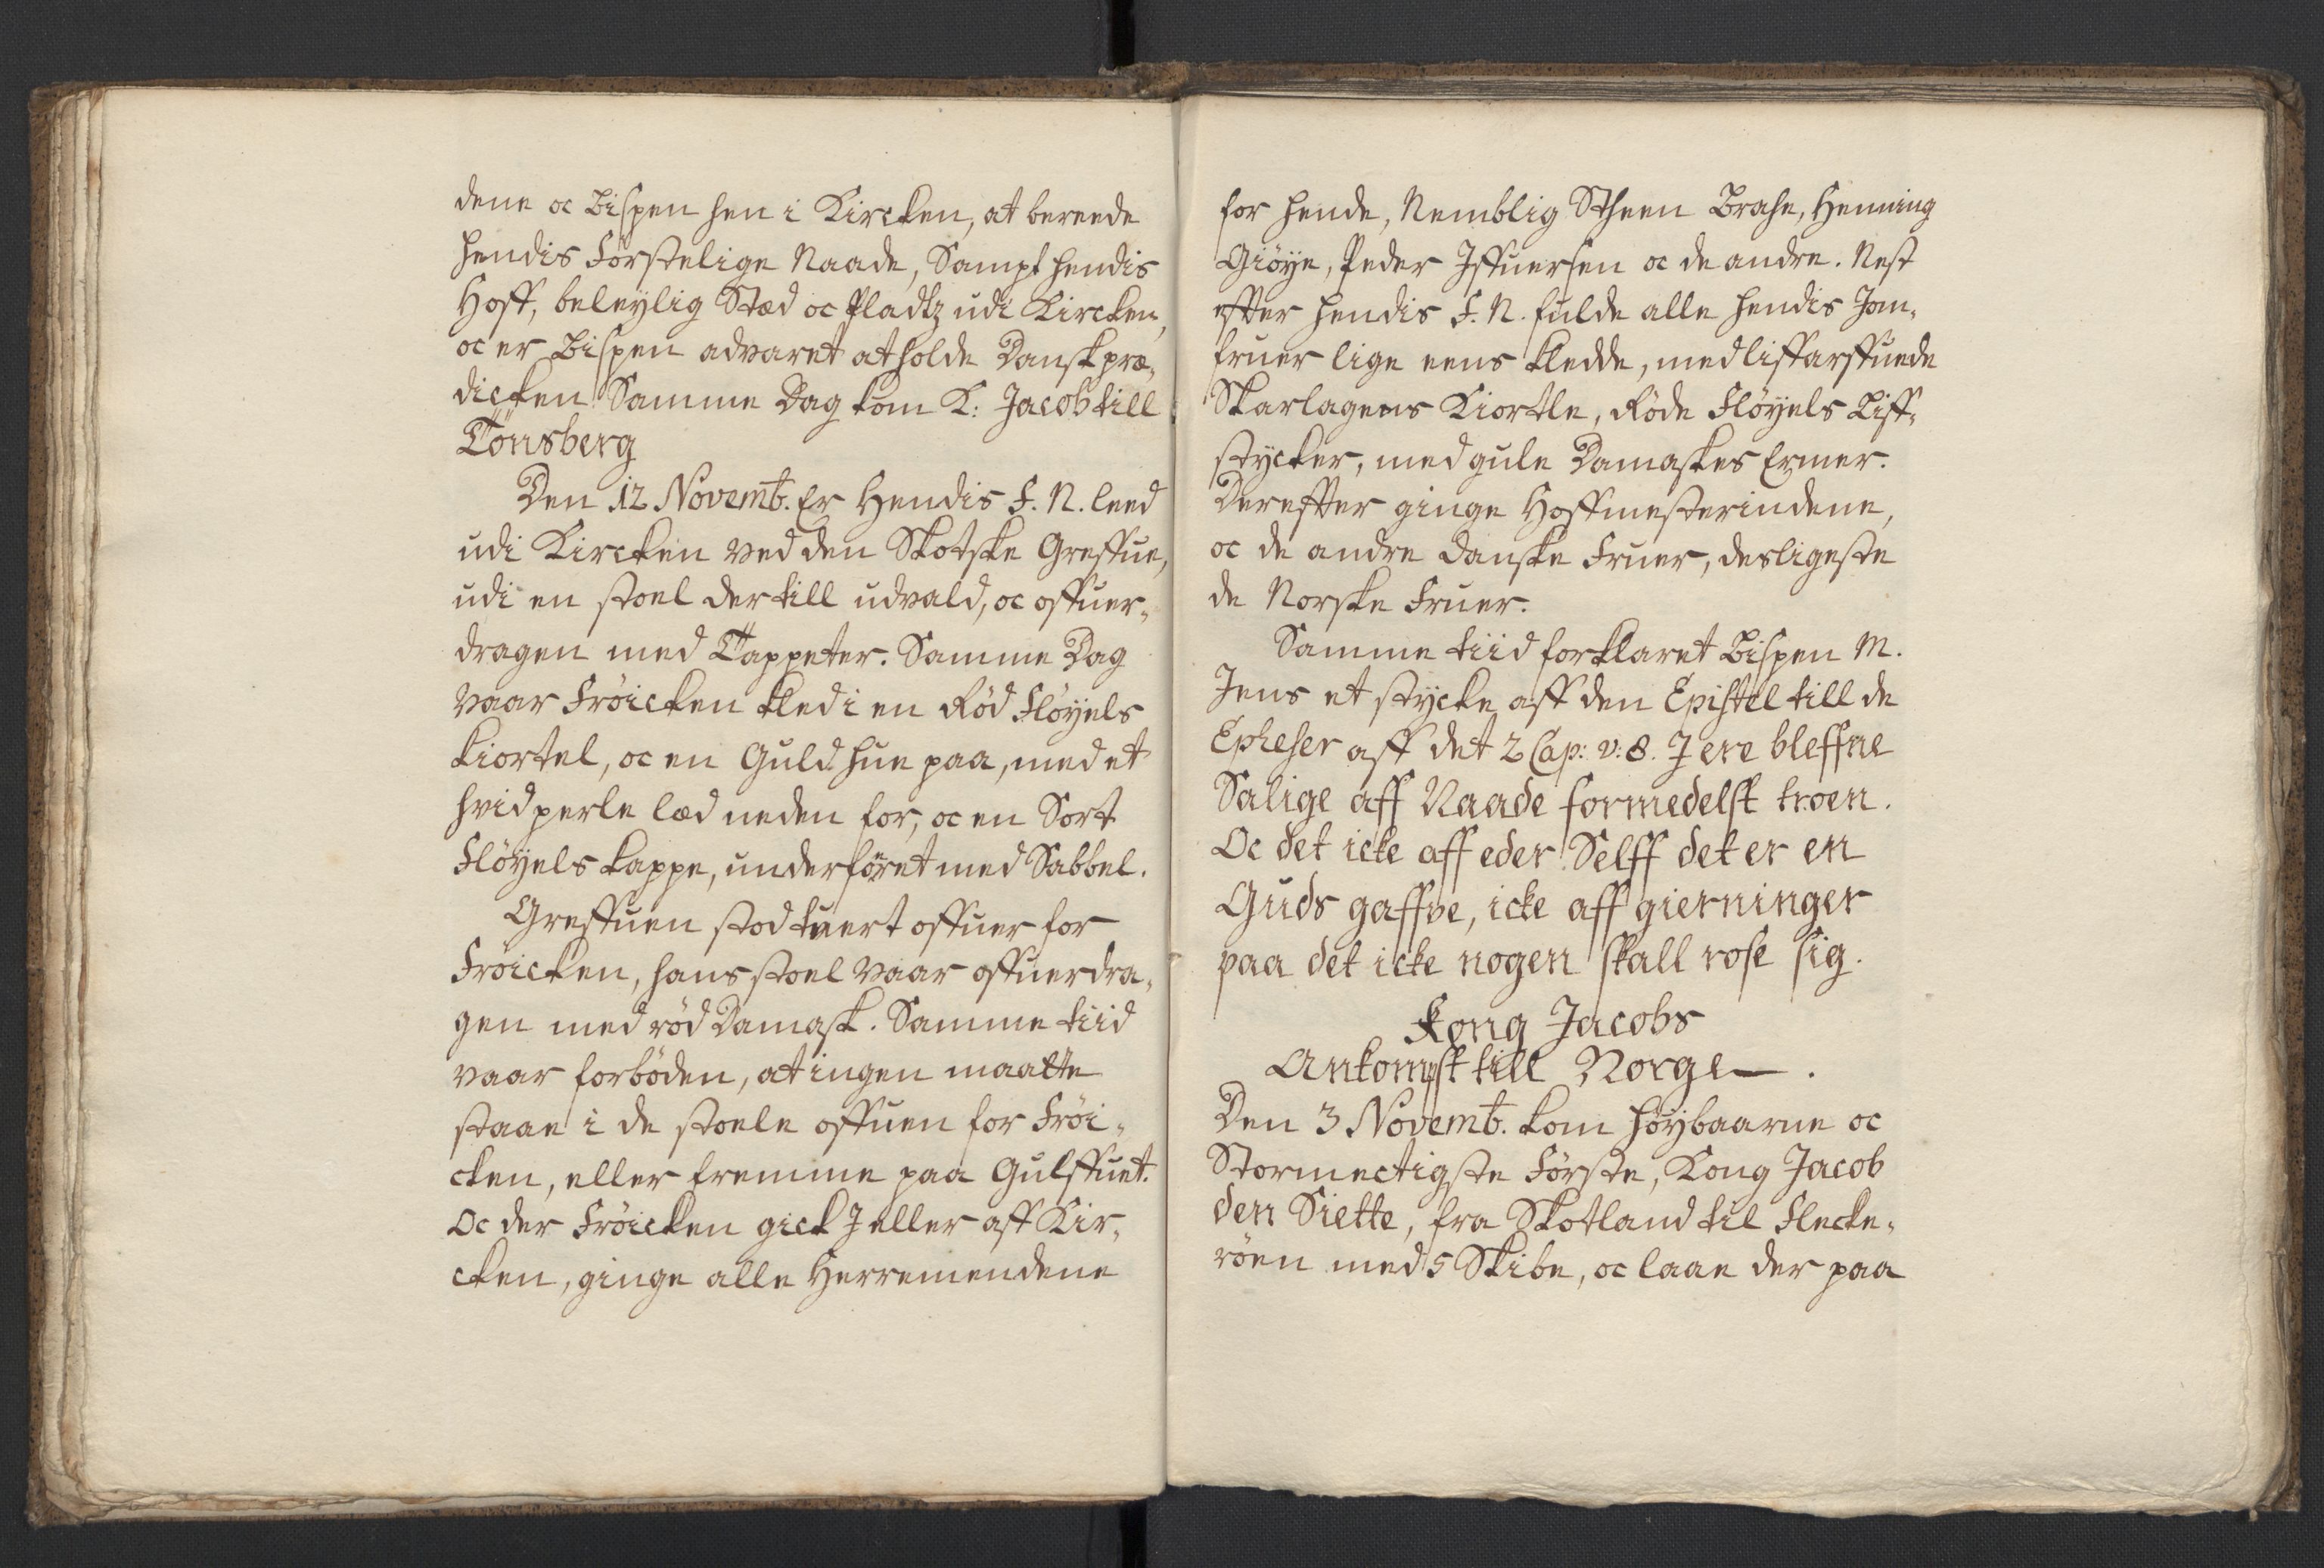 dene oc Bispen hen i Kircken, at bereede
hendis Førstelige Naade, Sampt hendis
Hoff, beleylig Stæd oc Pladtz udi Kircken,
oc er Bispen advaret at holde Dansk præ-
dicken. Samme Dag kom K: Jacob till
Tönsberg
Den 12 Novemb. Er Hendis F. N. leed
udi Kircken ved den Skotske Greffue,
udi en stoel der till udvald, oc offuer-
dragen med Tappeter. Samme Dag
vaar Fröicken kled i en Röd Flöyels
kiortel, oc en Guld hue paa, med et
hvid perle læd neden for, oc en Sort
Flöyels kappe, underföret med Sabbel.
Greffuen stod tuert offuer for
Fröicken, hans stoel vaar offuerdra-
gen med röd Damask. Samme tiid
vaar forböden, at ingen maatte
staae i de stoele offuen for Fröi-
cken, eller fremme paa Gulffuet.
Oc der Fröicken gick J eller aff Kir-
cken, ginge alle Herremendene
for hende, Nemblig Stheen Brahe, Henning
Giöye, Peder Jffuersen oc de andre. Nest
efter hendis F. N. fulde alle hendis Jom-
fruer lige eens kledde, med liffarffuede
Skarlagens Kiortle, Röde Flöyels Liff-
stycker, med gule Damaskes Ermer.
Dereffter ginge Hoffmesterindene,
oc de andre Danske Fruer, desligeste
de Norske Fruer.
Samme tiid forklaret Bispen M.
Jens et stycke aff den Epistel till de
Epheser aff det 2 Cap: v: 8. J ere bleffne
Salige aff Naade formedelst troen.
Oc det icke aff eder Selff det er en
Guds gaffve, icke aff gierninger
paa det icke nogen skall rose sig.
Kong Jacobs
Ankompst till Norge.
Den 3 Novemb. kom höybaarne oc
Stormectigste Förste, Kong Jacob
den Siette, fra Skotland til Flecke-
röen med 5 Skibe, oc laae der paa